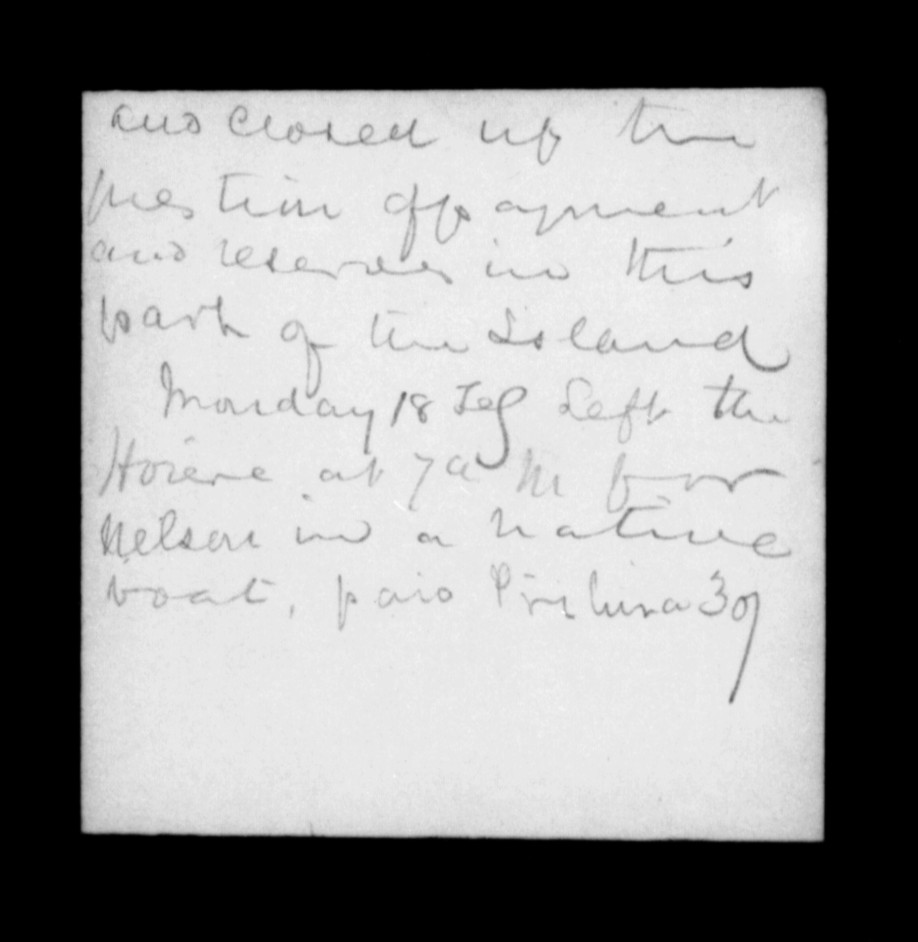 and closed up the
question of payment
and reserves in this
part of the Island
Monday 18 Feb Left the
Hoiere at 7 a m for
Nelson in a native
boat, paid 30/